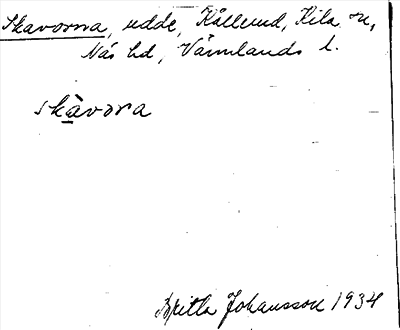 Skavorna, udde, Källerud, Kila sn,
Näs hd, Värmlands l.
skàvora
Britta Johansson 1934